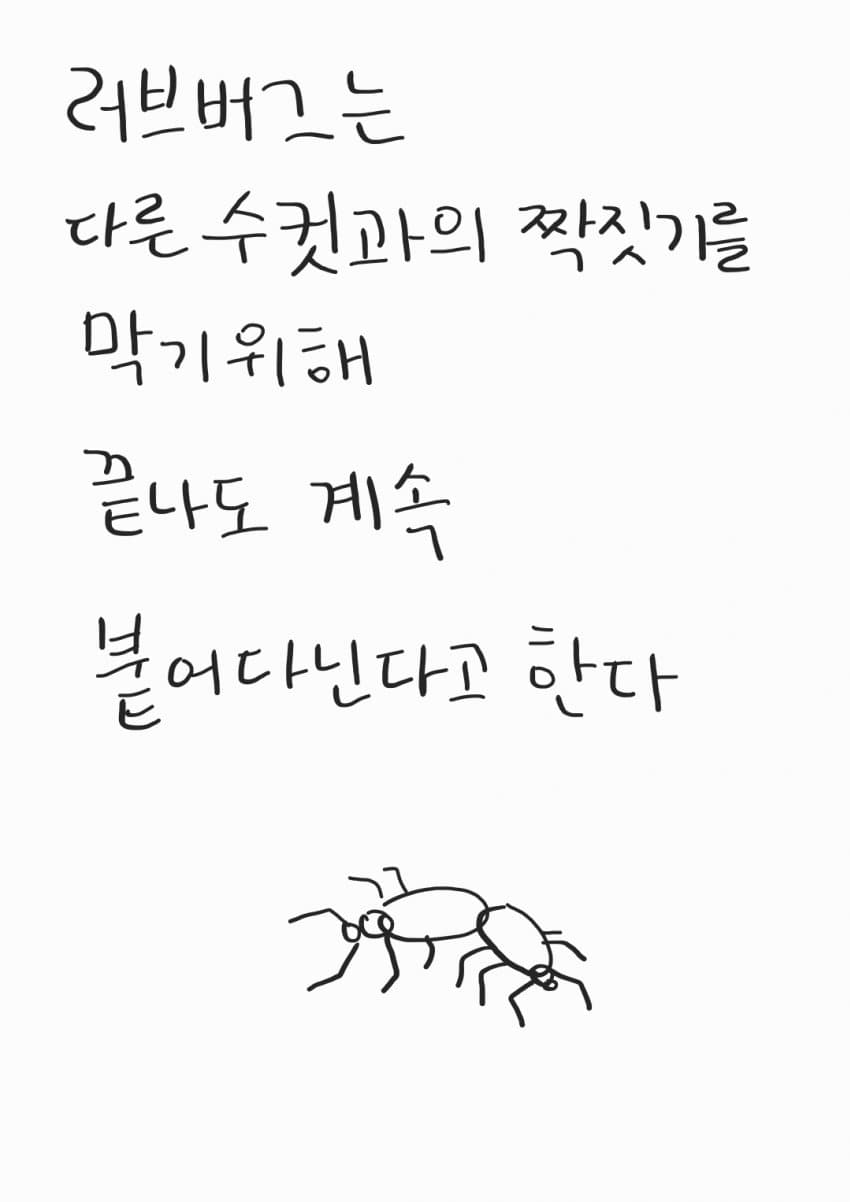 러브버그는
다른 수컷과의 짝짓기를
막기위해
끝나도 계속
붙어다닌다고 한다